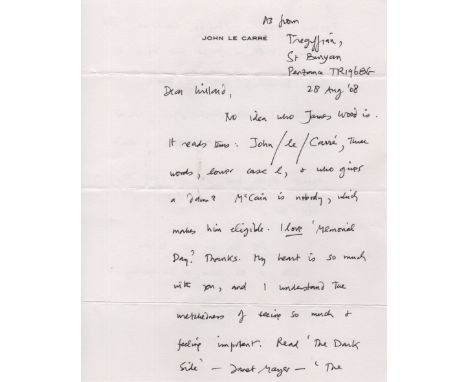 As from
JOHN LE CARRÉ
Tregiffian,
St Buryan
Penzance TR196BG
28 Aug '08
Dear Willard,
No idea who James Wood is.
It reads thus: John/le/Carré, three
words, lower case l, & who gives
a damn? McCain is nobody, which
makes him eligible. I love 'Memorial
Day'! Thanks. My heart is so much
with you, and I understand the
wretchedness of seeing so much &
feeling impotent. Read 'The Dark
Side' – Janet Mayer – 'The